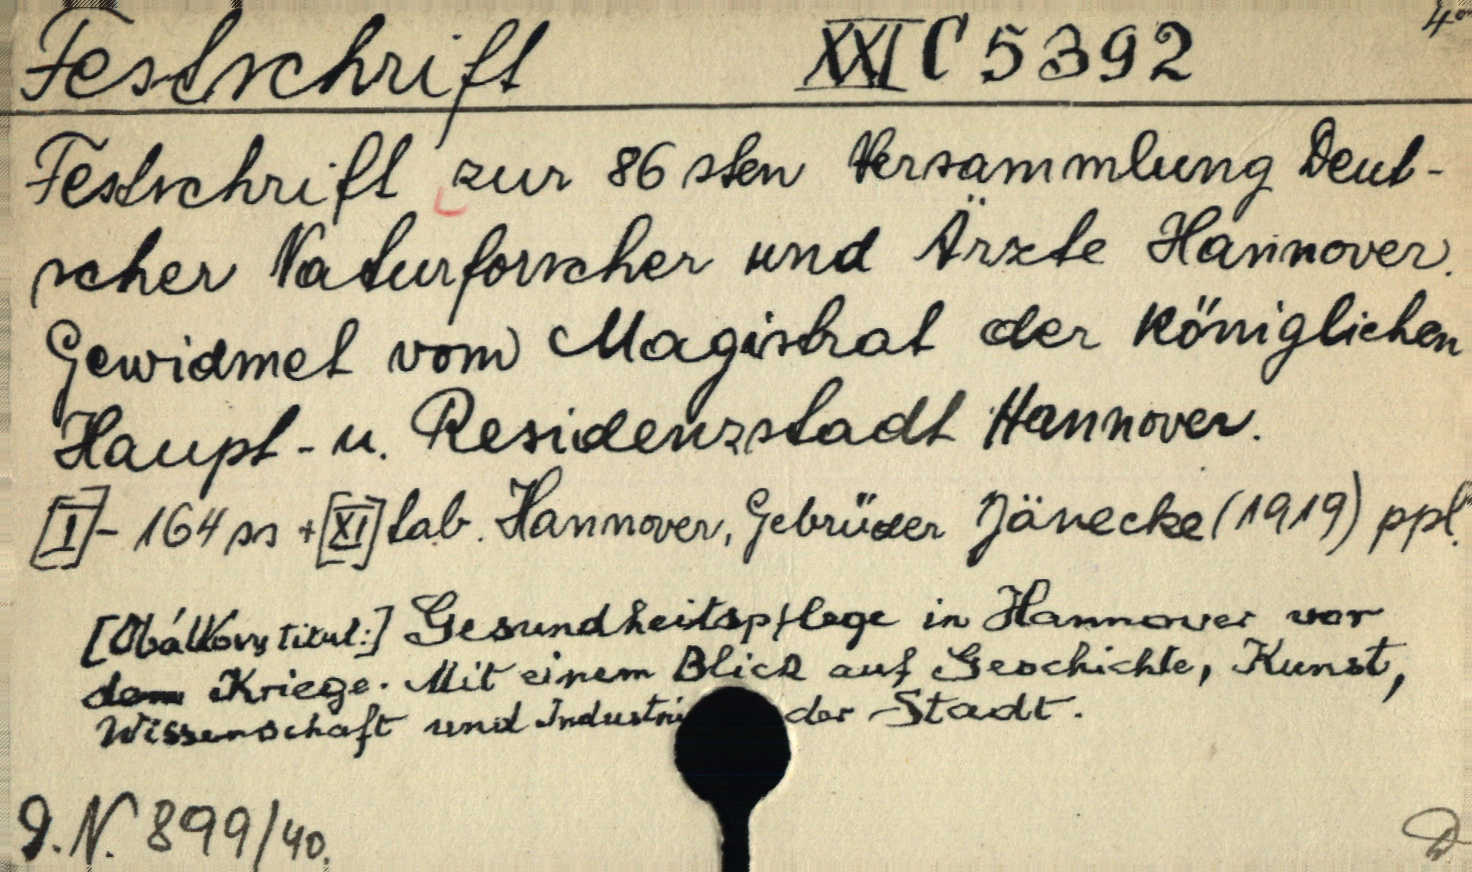 Festschrift XXI C 5392 4°
Festschrift zur 86sten Versammlung Deut-
scher Naturforscher und Ärzte Hannover.
Gewidmet vom Magistrat der Königlichen
Haupt- u. Residenzstadt Hannover.
[I]- 164 ss +[XI] tab. Hannover, Gebrüder Jänecke (1919) ppl.
[Obálkový titul:] Gesundheitspflege in Hannover vor
dem Kriege. Mit einem Blick auf Geschichte, Kunst,
Wissenschaft und Industri der Stadt.
D.N. 899/40.